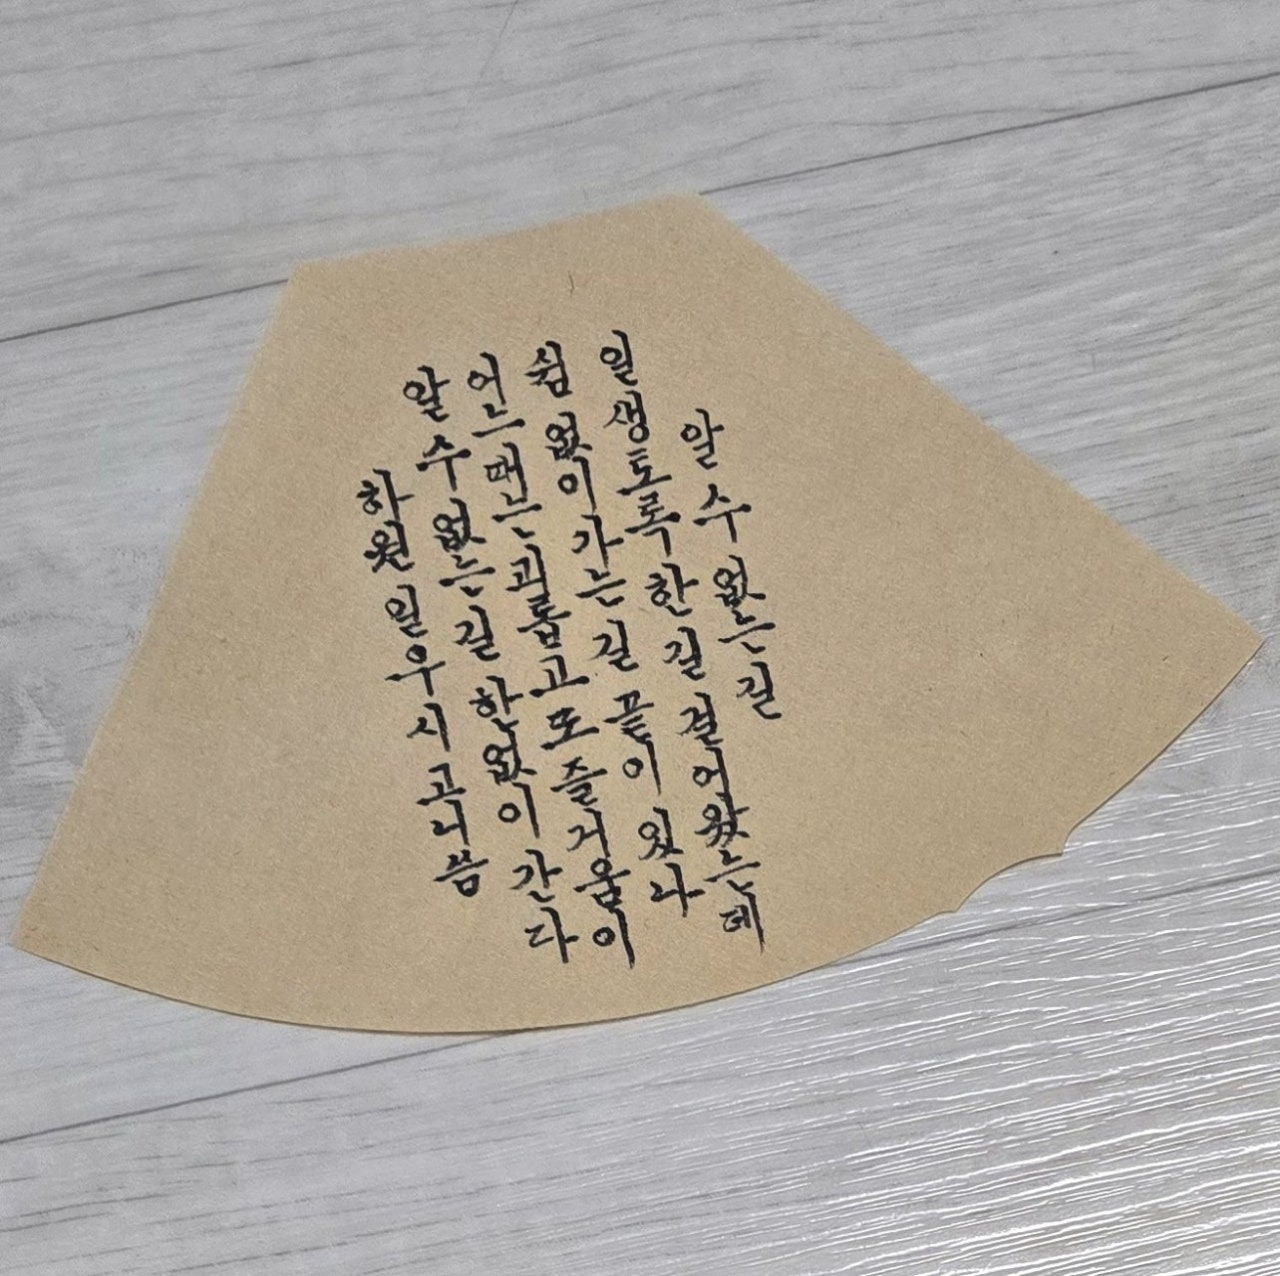 알 수 없는 길
일생토록 한길 걸어왔는데
쉼 없이 가는 길 끝이 있나
어느때는 괴롭고 또 즐거움이
알 수 없는 길 한없이 간다
하원일우 시 고니 씀